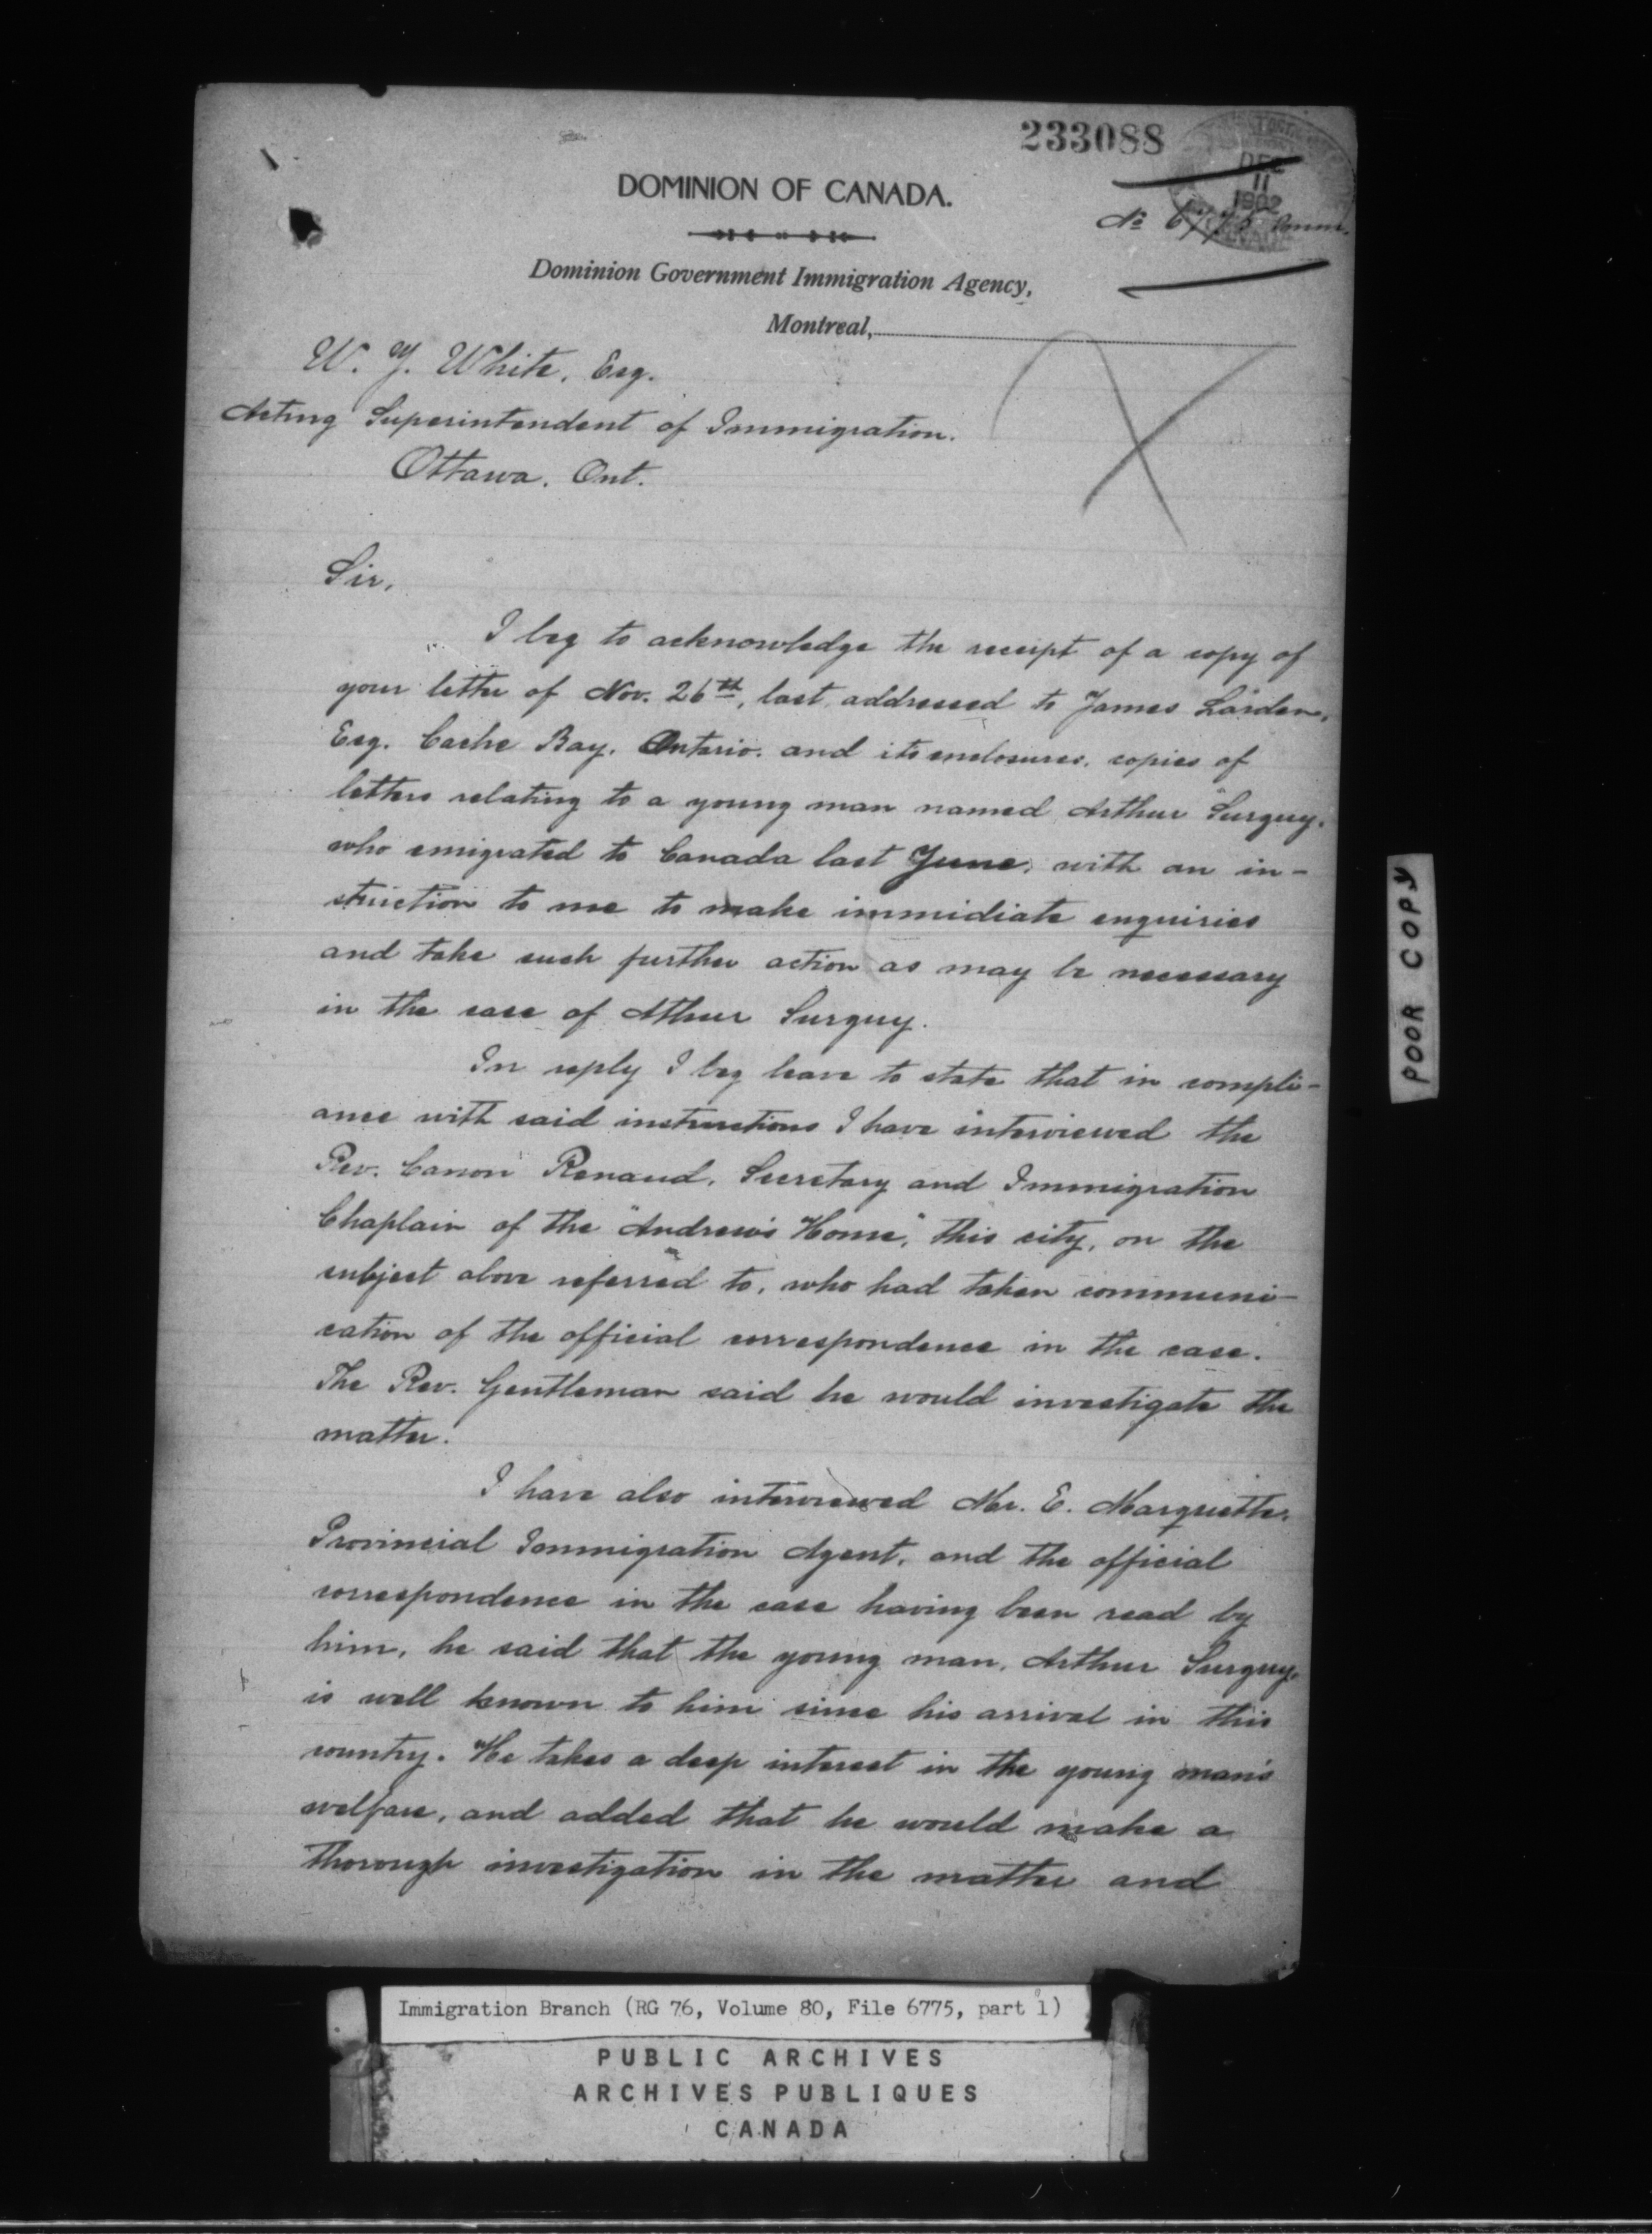 233088
DEC
11
1902
No 6775 Imm.
DOMINION OF CANADA.
Dominion Government Immigration Agency,
Montreal,
W. J. White, Esq.
Acting Superintendent of Immigration.
Ottawa, Ont.
Sir,
I beg to acknowledge the receipt of a copy of
your letter of Nov. 26th, last, addressed to James Larden,
Esq. Cache Bay, Ontario, and its enclosures, copies of
letters relating to a young man named Arthur Surguy,
who emigrated to Canada last June, with an in-
struction to me to make immidiate enquiries
and take such further action as may be necessary
in the case of Athur Surguy.
In reply I beg leave to state that in compli-
ance with said instructions I have interviewed the
Rev. Canon Renaud, Secretary and Immigration
Chaplain of the "Andrew's Home", this city, on the
subject above referred to, who had taken communi-
cation of the official correspondence in the case.
The Rev. Gentleman said he would investigate the
matter.
I have also interviewed Mr. E. Marquette,
Provincial Immigration Agent, and the official
correspondence in the case having been read by
him, he said that the young man, Arthur Surguy,
is well known to him since his arrival in this
country. He takes a deep interest in the young man's
welfare, and added that he would make a
thorough investigation in the matter and
POOR COPY
Immigration Branch (RG 76, Volume 80, File 6775, part 1)
PUBLIC ARCHIVES
ARCHIVES PUBLIQUES
CANADA